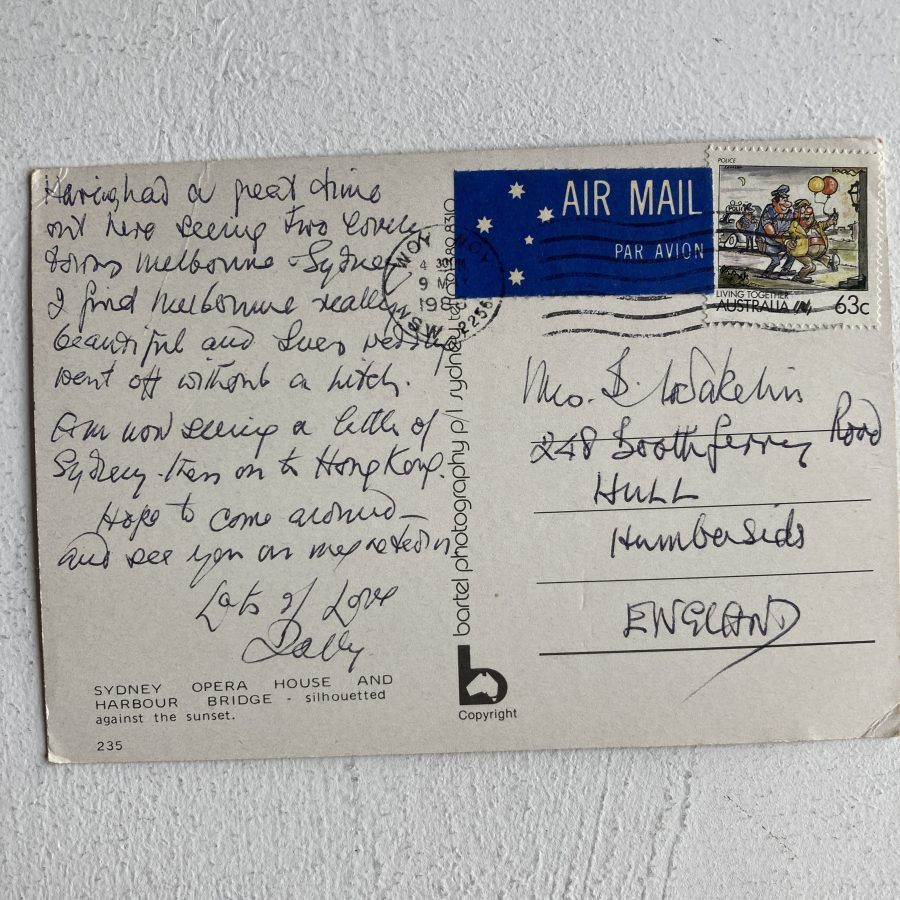 Having had a great time
out here seeing two lovely
towns Melbourne - Sydney
I find Melbourne really
beautiful and Sues wedding
went off without a hitch.
Am now seeing a little of
Sydney - then on to Hong Kong.
Hope to come around -
and see you on my return
Lots of Love
Dolly
SYDNEY OPERA HOUSE AND
HARBOUR BRIDGE - silhouetted
against the sunset.
235
bartel photography p/l sydney
b
Copyright
WOY WOY
4 30PM
9 M
NSW 2256
AIR MAIL
PAR AVION
POLICE
POLICE
LIVING TOGETHER
AUSTRALIA 63c
Mrs. B. Wakelin
248 Boothferry Road
HULL
Humberside
ENGLAND